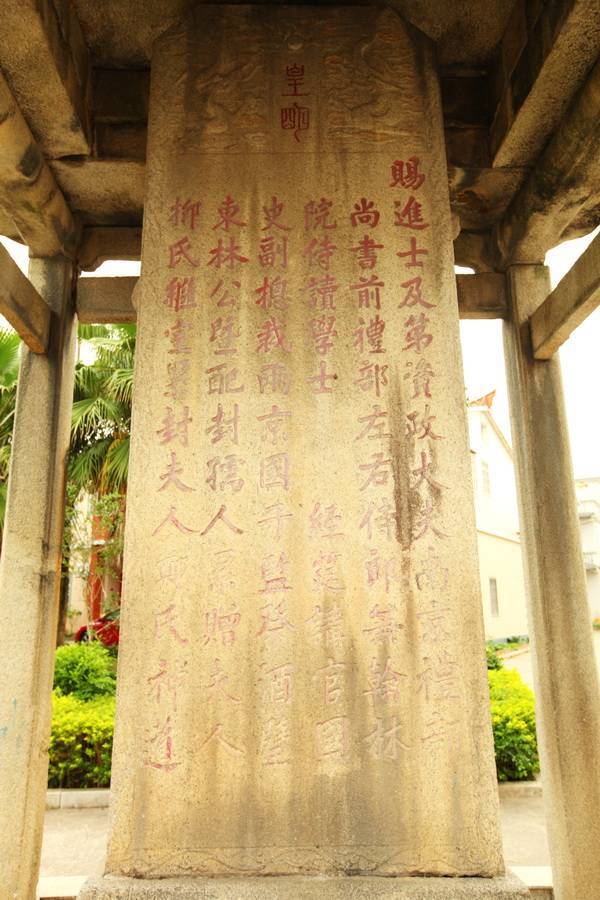 皇明
賜進士及第資政大夫南京禮部
尚書前禮部左右侍郎兼翰林
院侍讀學士 經筵講官國
史副總裁兩京國子監祭酒
東林公暨配封孺人累贈夫人
柳氏繼室累封夫人 氏神道